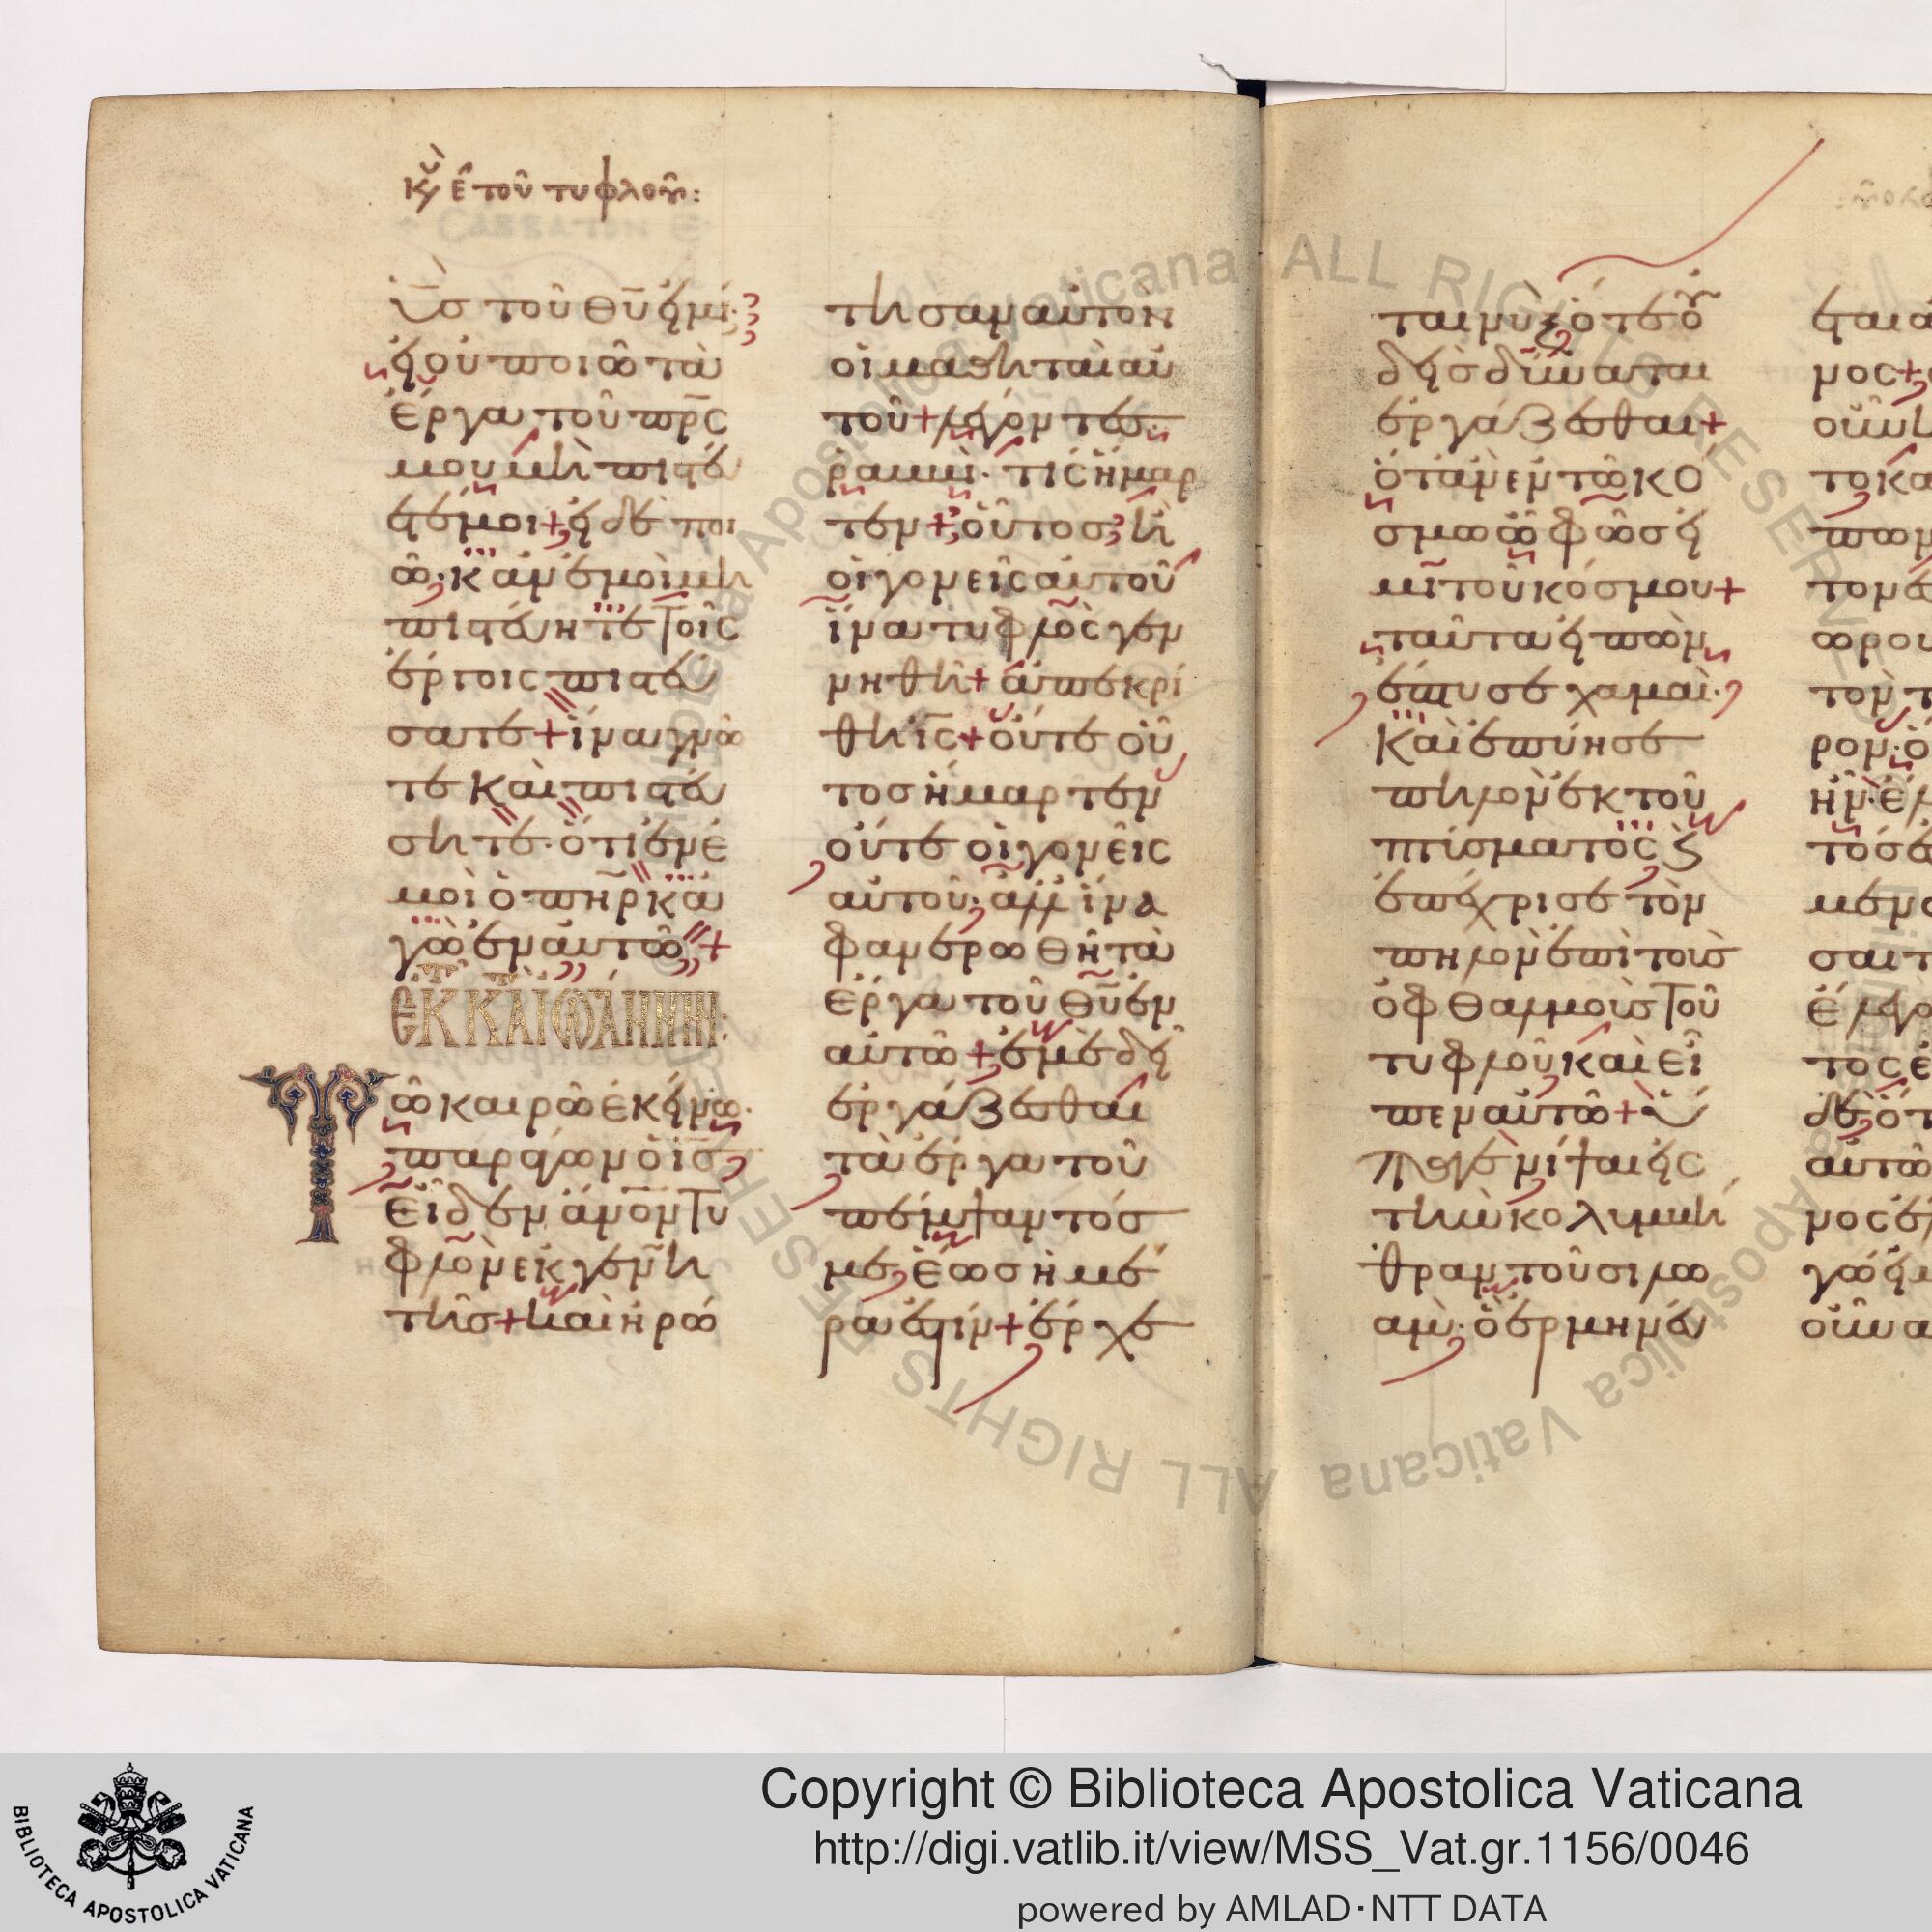 κυ ε τοῦ τυφλοῦ:
υς τοῦ θυ εἰμι·
εἰ οὐ ποιῶ τὰ
ἔργα τοῦ πρς
μου μὴ πιστεύ
ετέ μοι + εἰ δὲ ποι
ῶ· κἀν ἐμοὶ μὴ
πιστεύητε τοῖς
ἔργοις πιστεύ
σατε + ἵνα γνῶ
τε καὶ πιστεύ
σητε· ὅτι ἐν ἐ
μοὶ ὁ πηρ κἀ
γὼ ἐν αὐτῶ +
ΕΚ Κ ΚΑΙΩΑΝΝΗΝ:
Τῶ καιρῶ ἐκείνω·
παράγων ὁ ις
εἶδεν ἀνον τυ
φλὸν ἐκ γενε
τῆς + καὶ ἠρώ
τησαν αὐτὸν
οἱ μαθηταὶ αὐ
τοῦ + λέγοντες·
ῥαββί· τίς ἥμαρ
τεν + οὗτος ἢ
οἱ γονεῖς αὐτοῦ
ἵνα τυφλὸς γεν
νηθῆ + ἀπεκρί
θη ις + οὔτε οὗ
τος ἥμαρτεν
οὔτε οἱ γονεῖς
αὐτοῦ· ἀλλ ἵνα
φανερωθῆ τὰ
ἔργα τοῦ θυ ἐν
αὐτῶ + ἐμὲ δεῖ
ἐργάζεσθαι
τὰ ἔργα τοῦ
πέμψαντός
με ἕως ἡμέ
ρα ἐστίν + ἔρχε
ται νὺξ ὅτε οὐ
δεὶς δύναται
ἐργάζεσθαι +
ὅταν ἐν τῶ κό
σμω ὦ φῶς εἰ
μὶ τοῦ κόσμου +
ταῦτα εἰπὼν
ἔπτυσε χαμαὶ·
Καὶ ἐποίησε
πηλὸν ἐκ τοῦ
πτύσματος καὶ
ἐπέχρισε τὸν
πηλὸν ἐπὶ τοὺς
ὀφθαλμοὺς τοῦ
τυφλοῦ καὶ εἶ
πεν αὐτῶ + ὕ
παγε νίψαι εἰς
τὴν κολυμβή
θραν τοῦ σιλω
άμ· ὃ ἑρμηνεύ
εται ἀ
μος +
οὖν
το κα
πων
ρον· ὁ
το
αὐτῶ
Copyright © Biblioteca Apostolica Vaticana
http://digi.vatlib.it/view/MSS_Vat.gr.1156/0046
powered by AMLAD·NTT DATA
BIBLIOTECA APOSTOLICA VATICANA